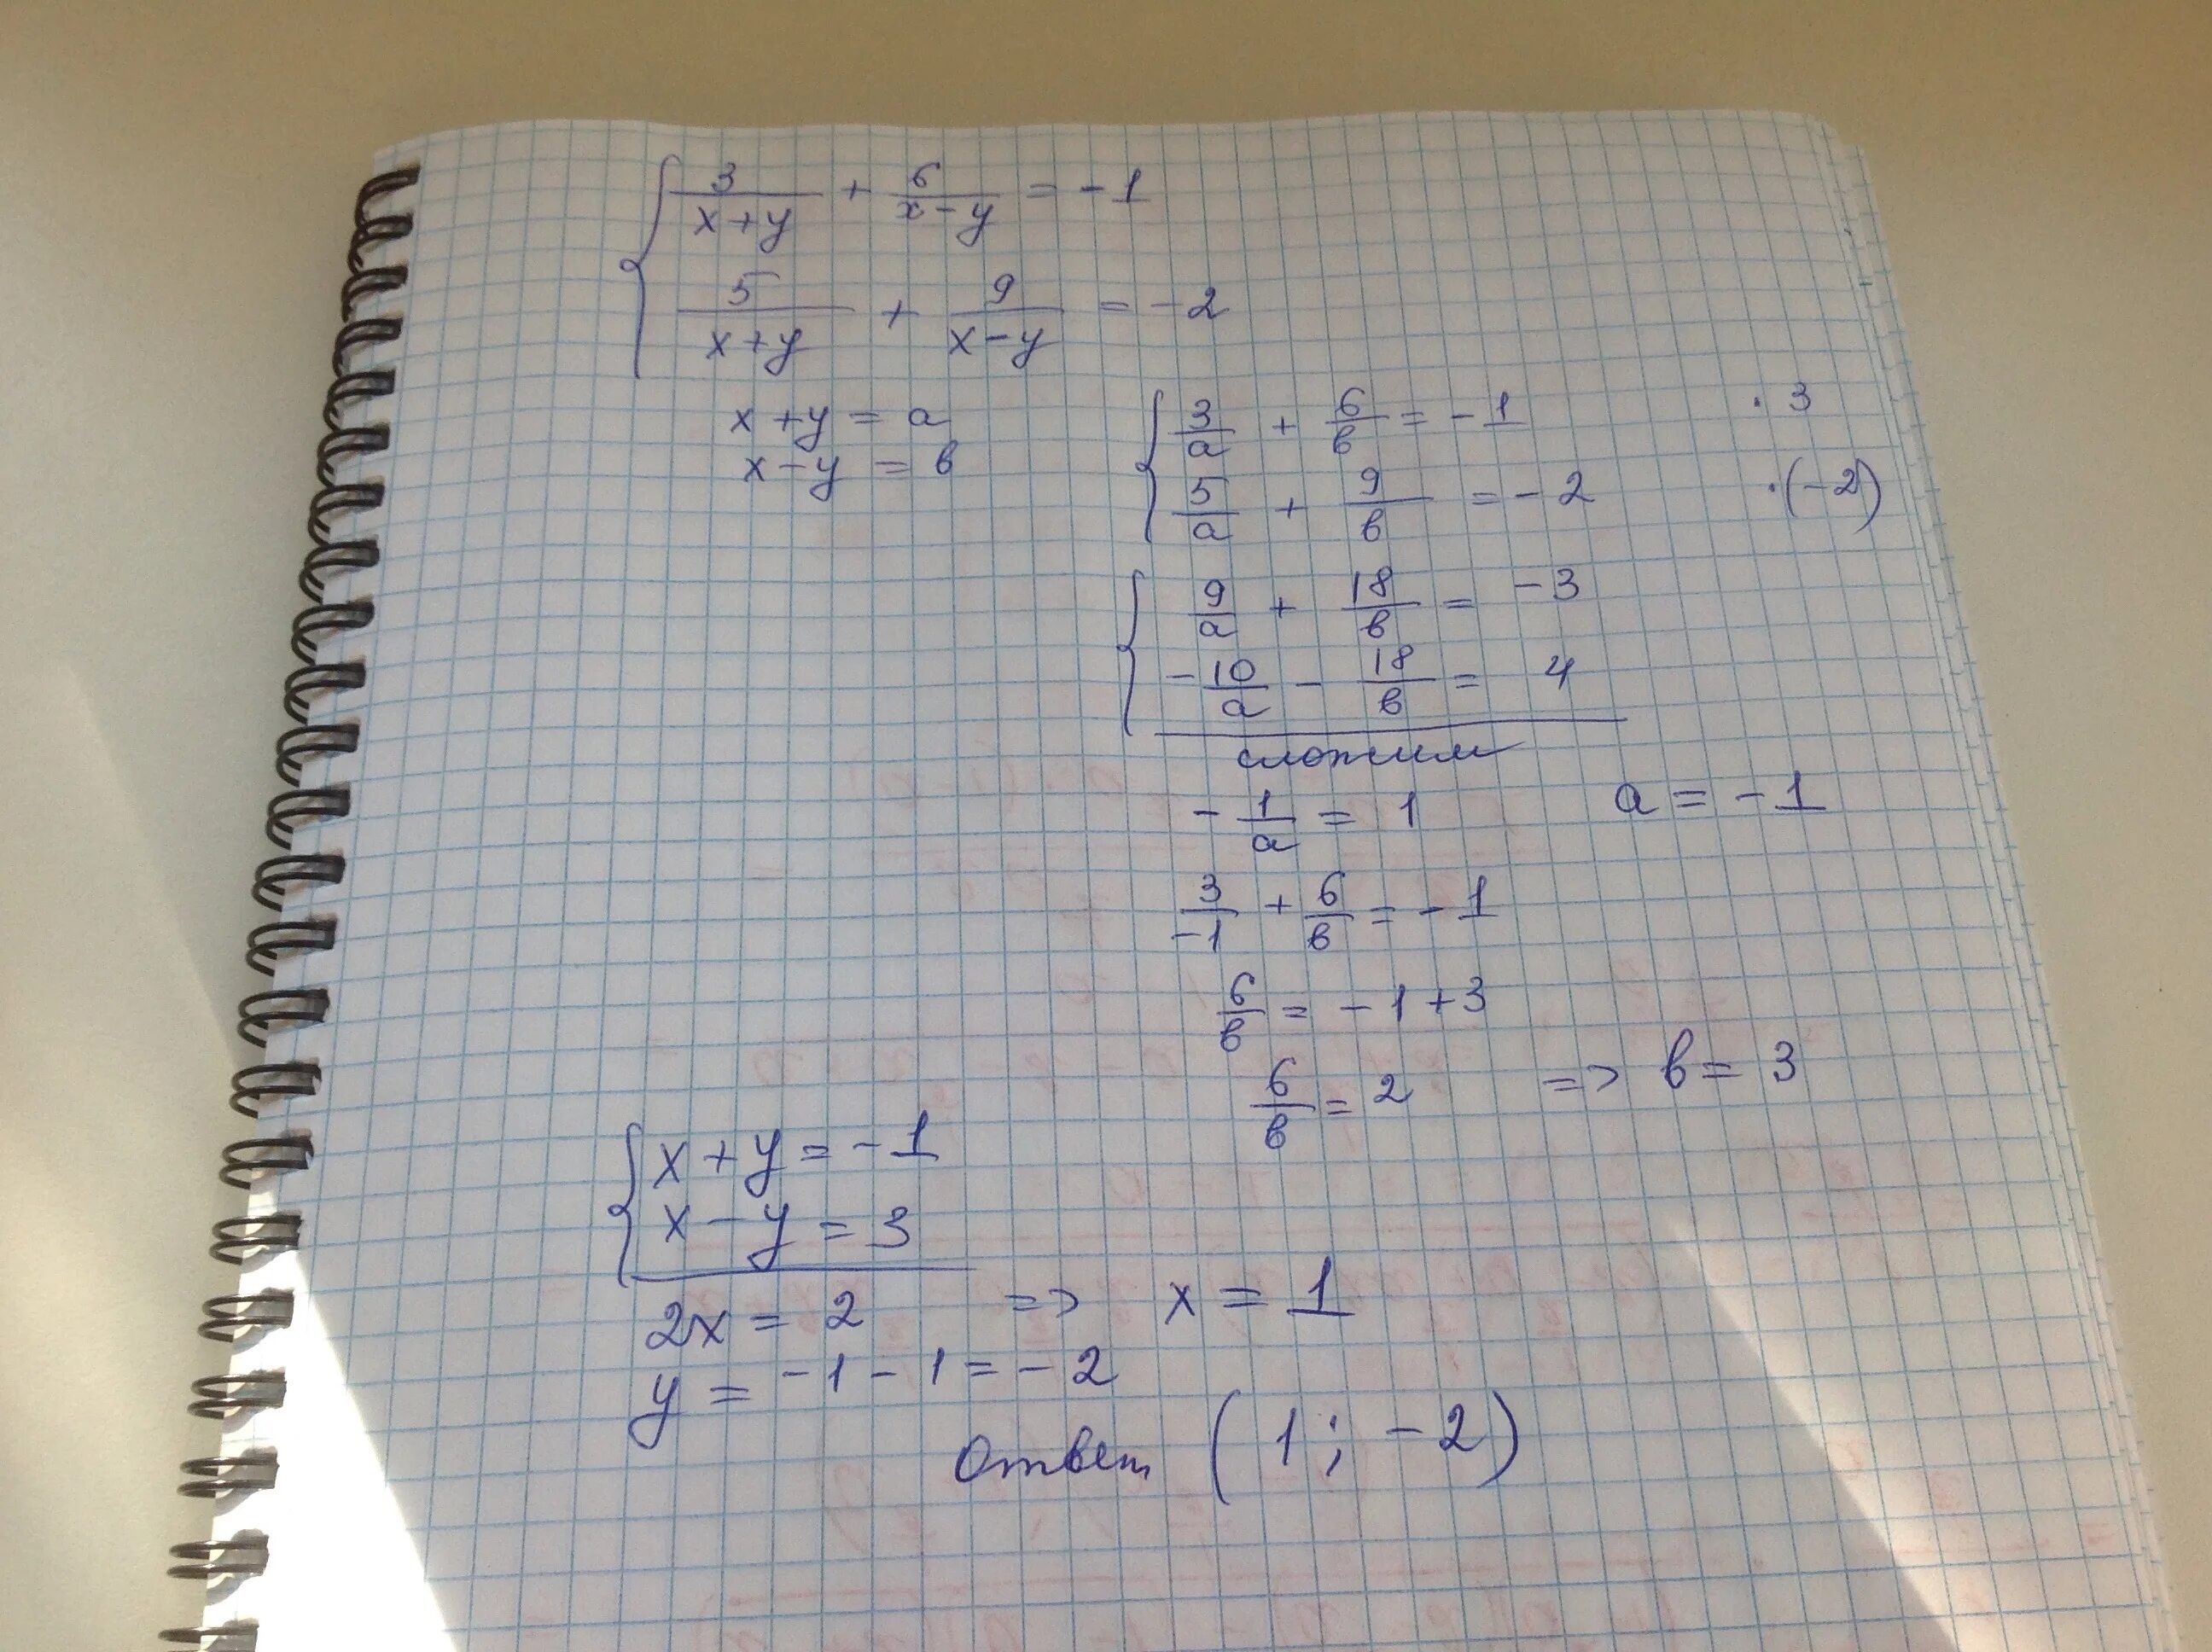 3/(x+y) + 6/(x-y) = -1
5/(x+y) + 9/(x-y) = -2
x+y = a
x-y = в
3/a + 6/в = -1 · 3
5/a + 9/в = -2 ·(-2)
9/a + 18/в = -3
-10/a - 18/в = 4
сложим
-1/a = 1 a = -1
3/-1 + 6/в = -1
6/в = -1+3
6/в = 2 => в = 3
x+y = -1
x-y = 3
2x = 2 => x = 1
y = -1-1 = -2
Ответ (1; -2)